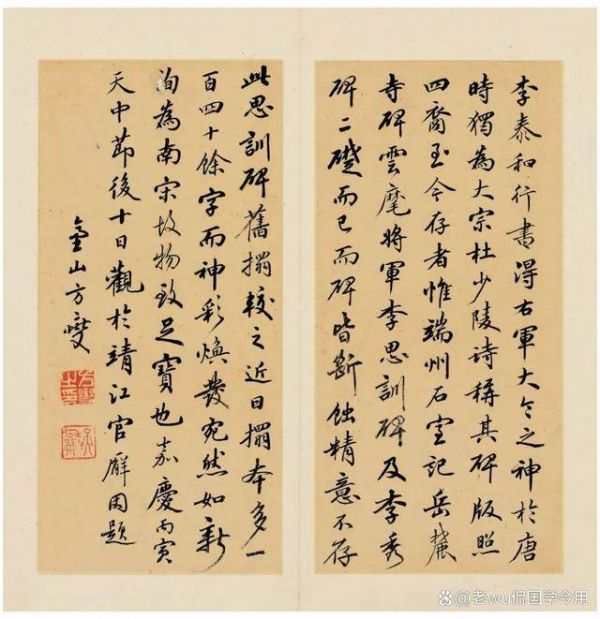 李泰和行書得右軍大令之神於唐
時獨為大宗杜少陵诗稱其碑版照
四裔至今存者惟端州石室記岳麓
寺碑雲麾將軍李思訓碑及李秀
碑二礎而已而碑皆斷蝕精意不存
此思訓碑舊搨較之近日搨本多一
百四十餘字而神彩煥發宛然如新
洵為南宋故物致足寶也嘉慶丙寅
天中節後十日觀於靖江官廨因題
金山方燮
@老wu侃国学今用